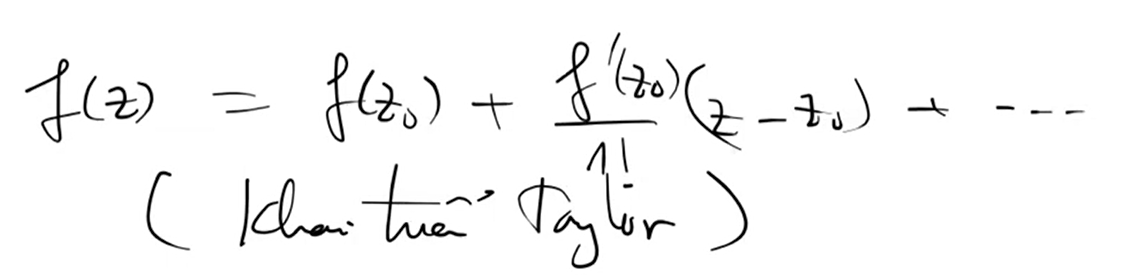 f(z) = f(z₀) + f'(z₀)/1! (z - z₀) + ----
(Khai tuển Taylor)